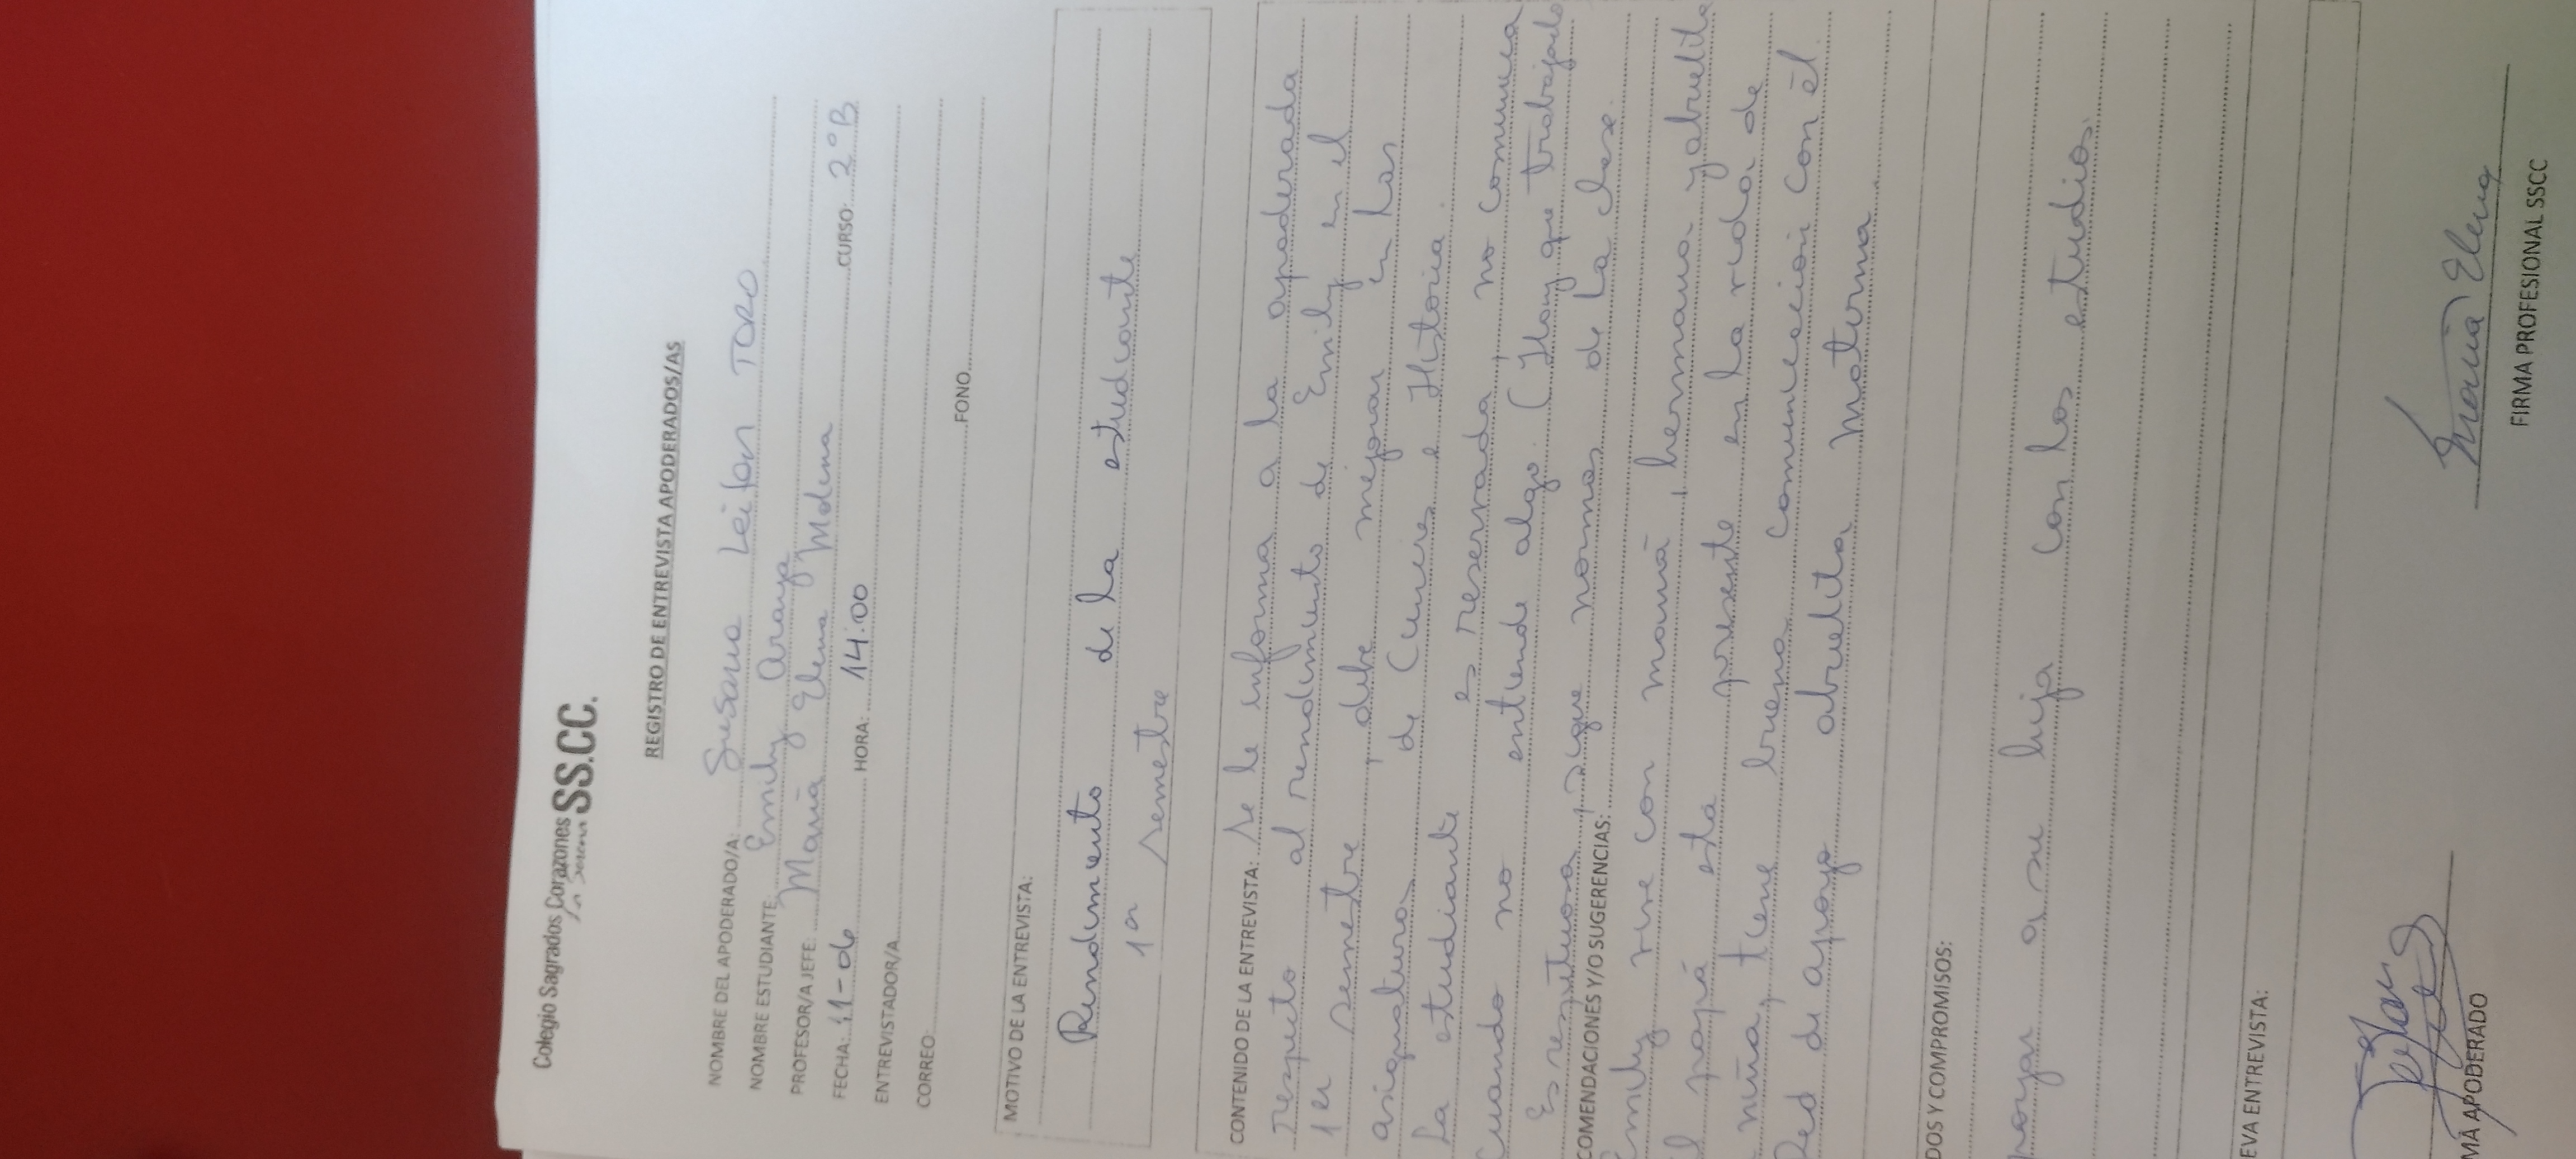 Colegio Sagrados Corazones SS.CC.
La Serena
REGISTRO DE ENTREVISTA APODERADOS/AS
NOMBRE DEL APODERADO/A: Susana Leiton TORO
NOMBRE ESTUDIANTE: Emily Araya
PROFESOR/A JEFE: María Elena Molina
FECHA: 11-06 HORA: 14:00 CURSO: 2°B
ENTREVISTADOR/A
CORREO: FONO
MOTIVO DE LA ENTREVISTA:
Rendimiento de la estudiante
1er semestre
CONTENIDO DE LA ENTREVISTA: Se le informa a la apoderada
respecto al rendimiento de Emily en el
1er semestre, debe mejorar en las
asignaturas de Ciencias e Historia.
La estudiante es reservada, no comunica
Cuando no entiende algo. (Hay que trabajarlo
Es respetuosa, sigue normas de la clase.
COMENDACIONES Y/O SUGERENCIAS:
Emily vive con mamá, hermana y abuelita
El papá está presente en la vida de
niña, tiene buena comunicación con él.
Red de apoyo abuelita Materna
DOS Y COMPROMISOS:
poyar a su hija con los estudios.
EVA ENTREVISTA:
MA APODERADO
María Elena
FIRMA PROFESIONAL SSCC